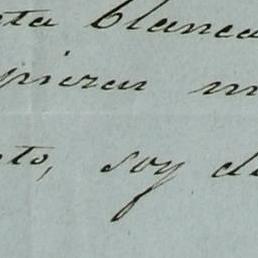 ta blanca
pieran m
to, soy de